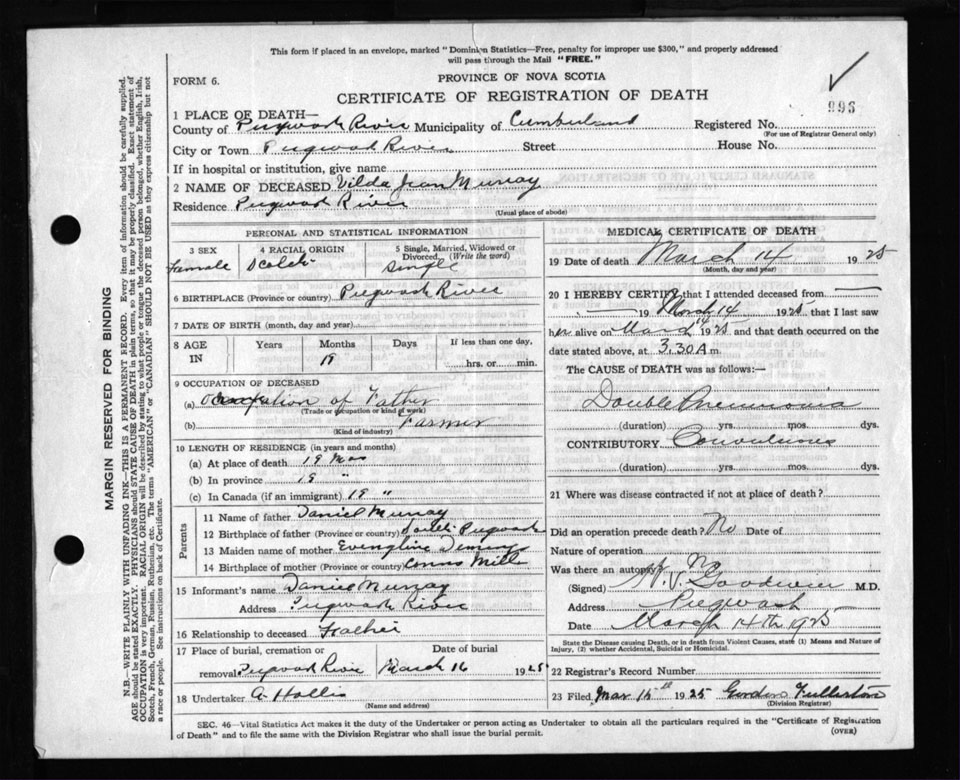 This form if placed in an envelope, marked "Dominion Statistics—Free, penalty for improper use $300," and properly addressed
will pass through the Mail "FREE."
FORM 6.
PROVINCE OF NOVA SCOTIA
CERTIFICATE OF REGISTRATION OF DEATH
993
1 PLACE OF DEATH—
County of Pugwash River Municipality of Cumberland Registered No.
(For use of Registrar General only)
City or Town Pugwash River Street House No.
If in hospital or institution, give name
2 NAME OF DECEASED Vilda Jean Murray
Residence Pugwash River
(Usual place of abode)
PERSONAL AND STATISTICAL INFORMATION
3 SEX 4 RACIAL ORIGIN 5 Single, Married, Widowed or Divorced (Write the word)
Female Scotch Single
6 BIRTHPLACE (Province or country) Pugwash River
7 DATE OF BIRTH (month, day and year)
8 AGE IN Years Months Days If less than one day,
hrs. or min.
9 OCCUPATION OF DECEASED
(a) Occupation of Father
(Trade or occupation or kind of work)
(b) Farmer
(Kind of industry)
10 LENGTH OF RESIDENCE (in years and months)
(a) At place of death 19 Mos
(b) In province 19 "
(c) In Canada (if an immigrant) 19 "
Parents
11 Name of father Daniel Murray
12 Birthplace of father (Province or country) South Pugwash
13 Maiden name of mother
14 Birthplace of mother (Province or country) Conns Mills
15 Informant's name Daniel Murray
Address Pugwash River
16 Relationship to deceased Father
17 Place of burial, cremation or removal Pugwash River
Date of burial
March 16 1925
18 Undertaker A Hollis
(Name and address)
MEDICAL CERTIFICATE OF DEATH
19 Date of death March 14 1925
(Month, day and year)
20 I HEREBY CERTIFY that I attended deceased from
19 March 14 1925 that I last saw
her alive on March 14 1925 and that death occurred on the
date stated above, at 3.30 A m.
The CAUSE of DEATH was as follows:—
Double Pneumonia
(duration) yrs. mos. dys.
CONTRIBUTORY Convulsions
(duration) yrs. mos. dys.
21 Where was disease contracted if not at place of death?
Did an operation precede death? No Date of
Nature of operation
Was there an autopsy? No
(Signed) Goodwin M.D.
Address Pugwash
Date March 14th 1925
State the Disease causing Death, or in death from Violent Causes, state (1) Means and Nature of
Injury, (2) whether Accidental, Suicidal or Homicidal.
22 Registrar's Record Number
23 Filed Mar 16th 1925 Gordon Fullerton
(Division Registrar)
SEC. 46—Vital Statistics Act makes it the duty of the Undertaker or person acting as Undertaker to obtain all the particulars required in the "Certificate of Registration
of Death" and to file the same with the Division Registrar who shall issue the burial permit.
(OVER)
MARGIN RESERVED FOR BINDING
N.B.—WRITE PLAINLY WITH UNFADING INK—THIS IS A PERMANENT RECORD. Every item of information should be carefully supplied.
AGE should be stated EXACTLY. PHYSICIANS should STATE CAUSE OF DEATH in plain terms, so that it may be properly classified. Exact statement of
OCCUPATION is very important. RACIAL ORIGIN will be described by stating to what people or tongue the deceased person belonged, whether English, Irish,
Scotch, French, German, Russian, Ruthenian, etc. The terms "AMERICAN" or "CANADIAN" SHOULD NOT BE USED as they express citizenship but not
a race or people. See instructions on back of Certificate.